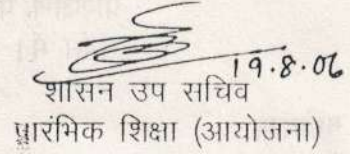 19.8.06
शासन उप सचिव
प्रारंभिक शिक्षा (आयोजना)